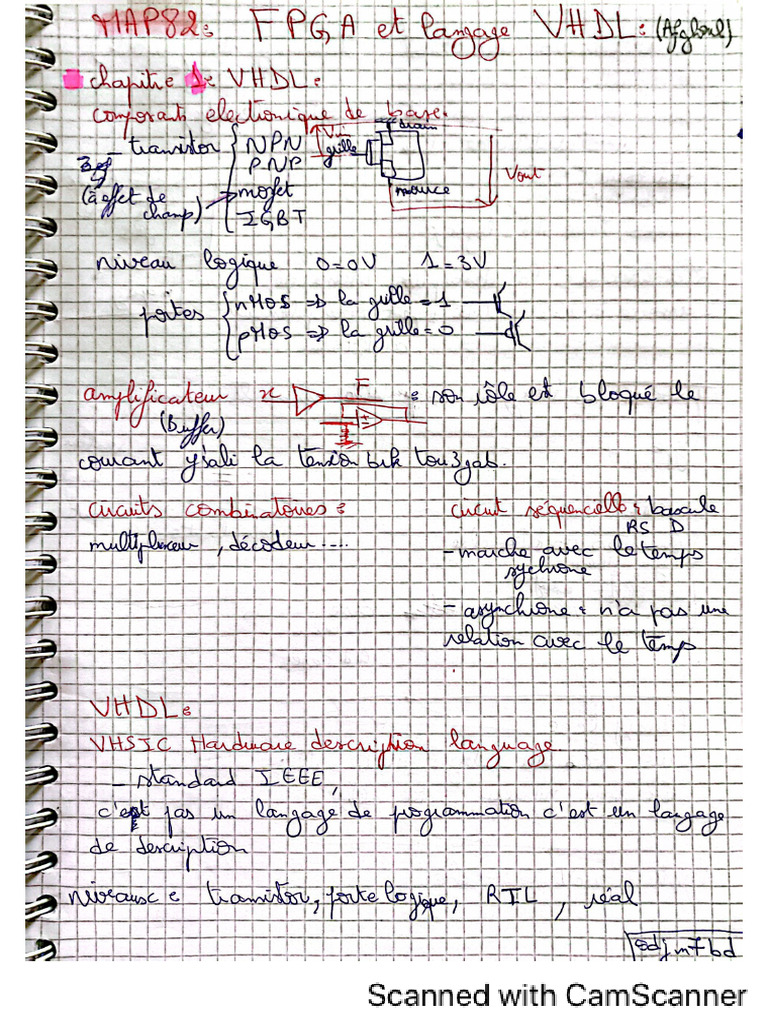 MAP82: FPGA et langage VHDL: (Afghoul)
chapitre 1: VHDL:
composants electronique de base.
- transistor { NPN
PNP
mosfet
IGBT
(à effet de champ)
Vin
drain
grille
source
Vout
niveau logique 0=0V 1=3V
portes { nMOS => la grille = 1
pMOS => la grille = 0
amplificateur x F : son rôle est bloqué le
(Buffer)
courant y5ali la tension brk tou3gab.
circuits combinatoires :
multiplexeur, décodeur....
circuit séquencielle : bascule
RS D
- marche avec le temps
sychrone
- asynchrone : n'a pas une
relation avec le temp
VHDL:
VHSIC Hardware description language.
- standard IEEE,
c'est pas un langage de programmation c'est un langage
de description
niveaux : transistor, porte logique, RTL, réal
Scanned with CamScanner